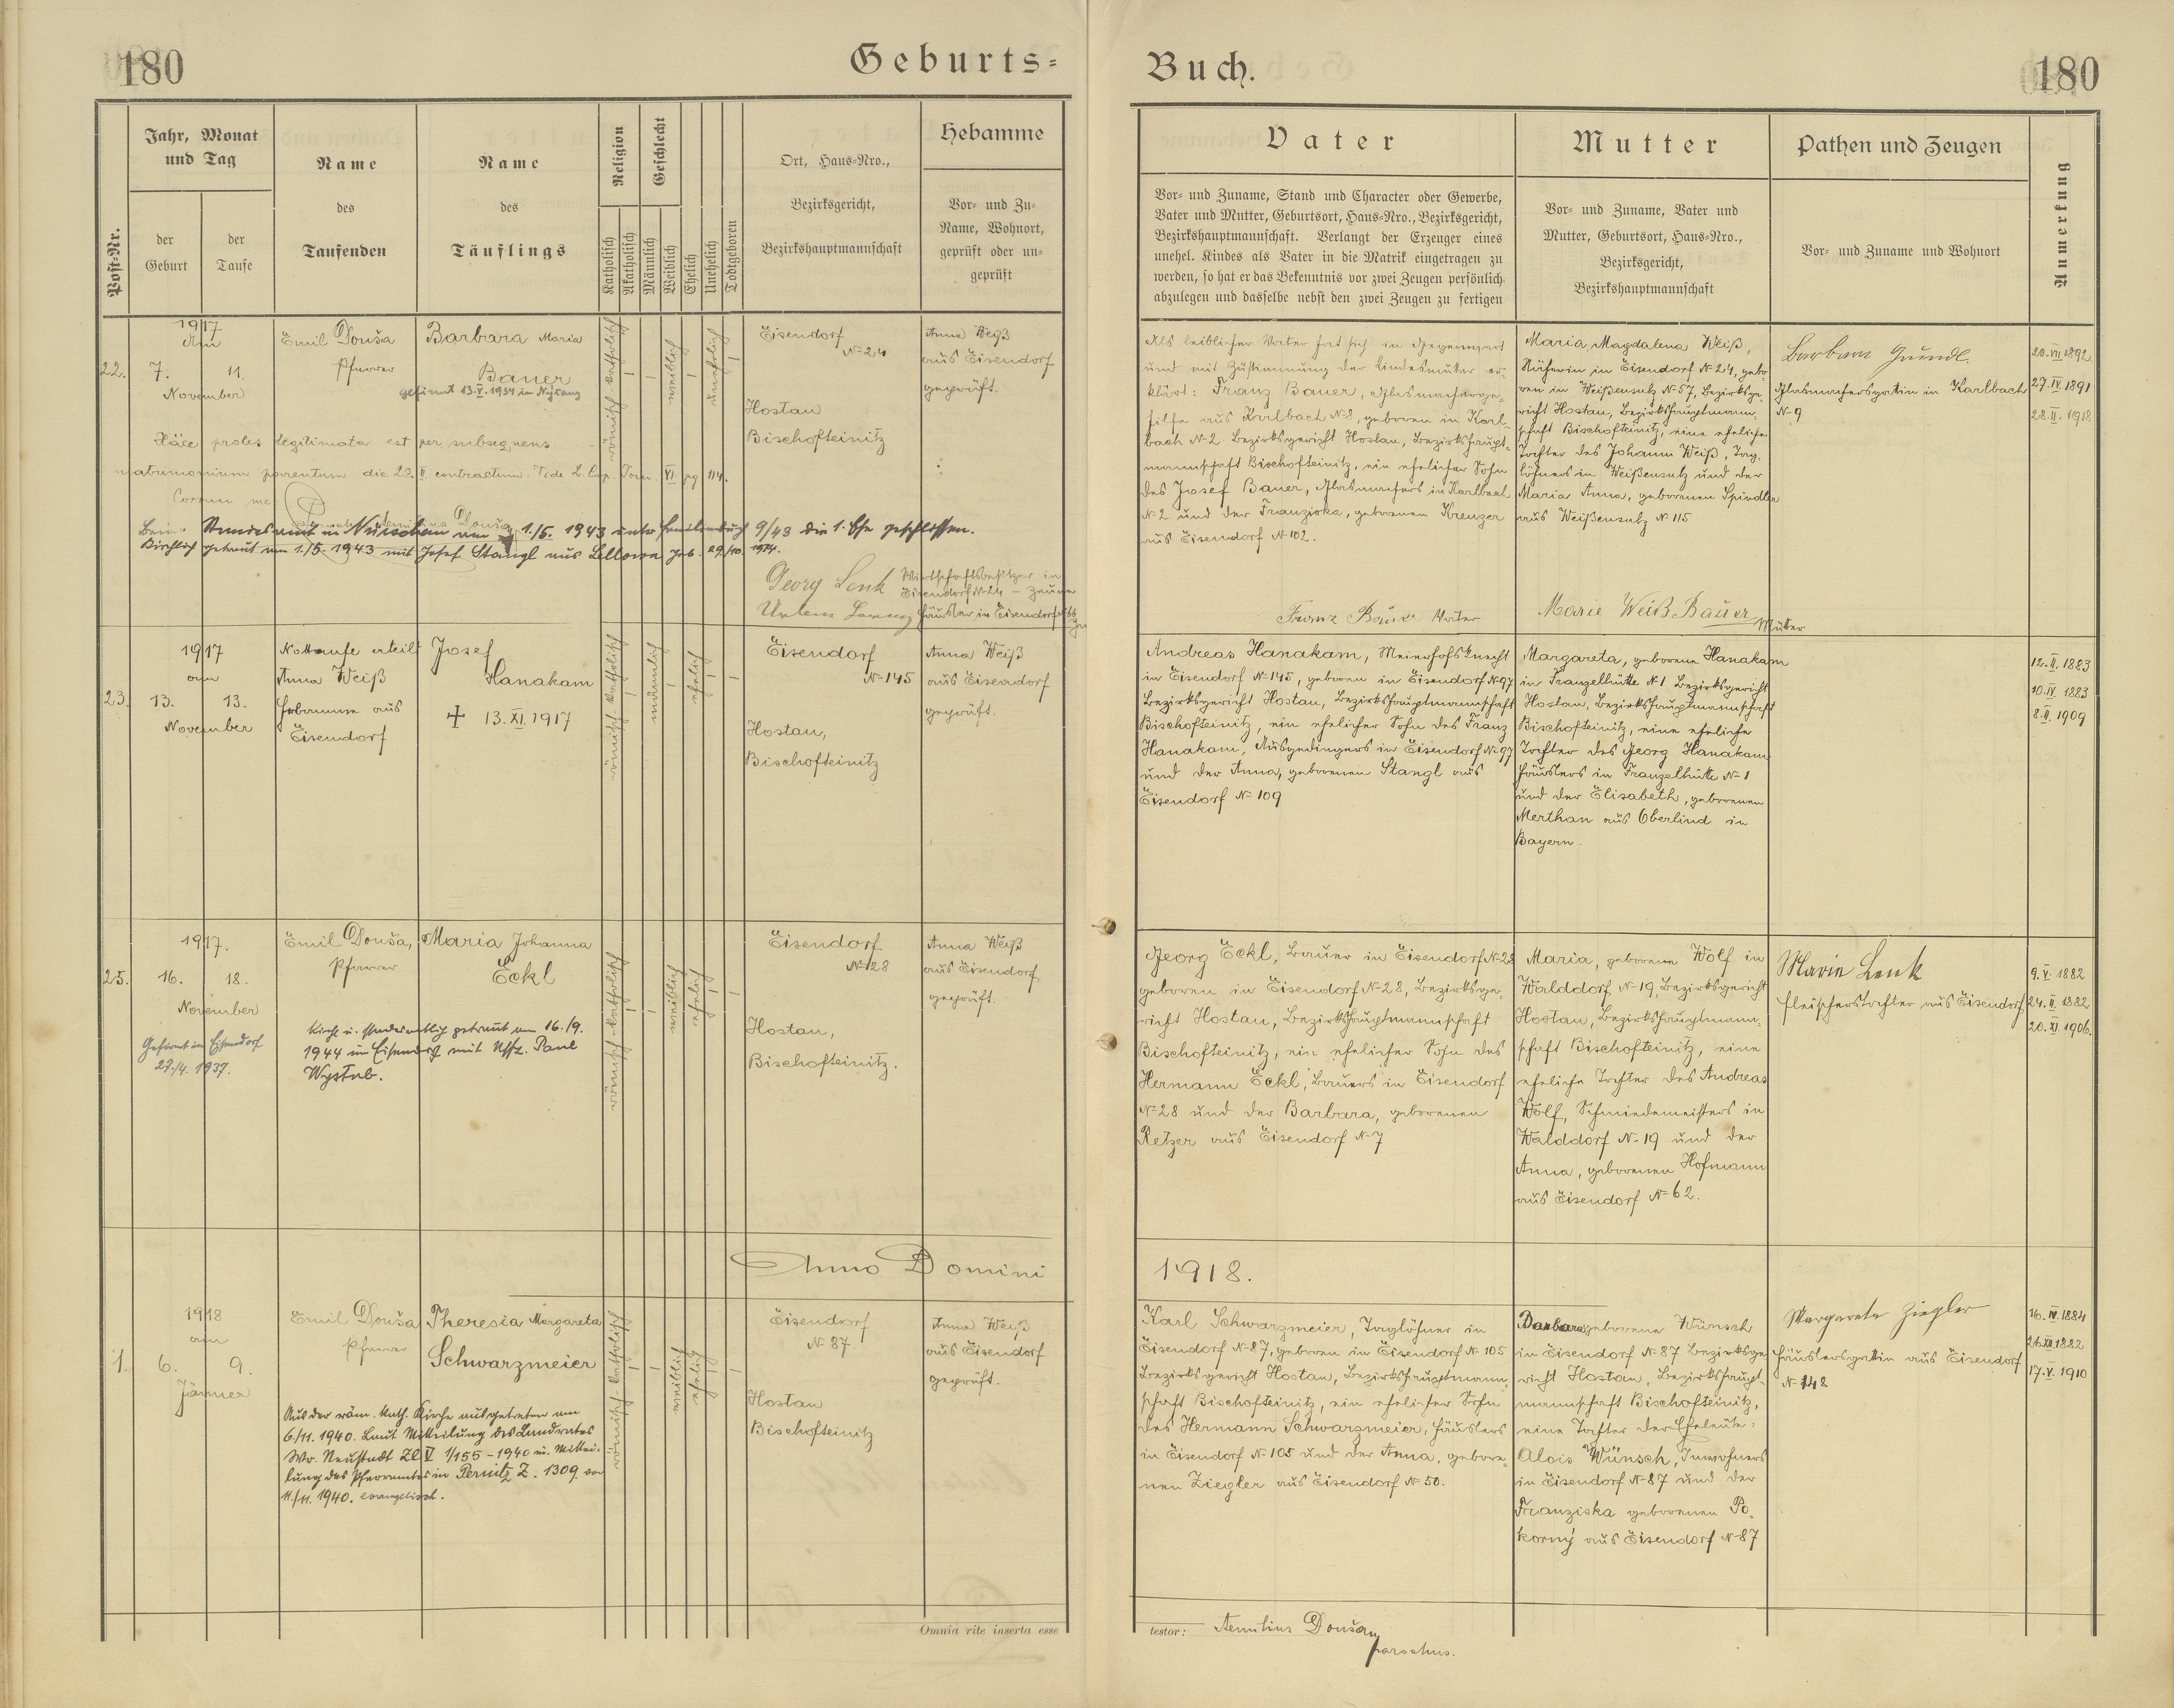 180
Geburts=
Buch.
180
Post-Nr.
Jahr, Monat
und Tag
der
Geburt
der
Taufe
Name
des
Taufenden
Name
des
Täuflings
Religion
Katholisch
Akatholisch
Geschlecht
Männlich
Weiblich
Ehelich
Unehelich
Todtgeboren
Ort, Haus=Nro.,
Bezirksgericht,
Bezirkshauptmannschaft
Hebamme
Vor= und Zu=
Name, Wohnort,
geprüft oder un=
geprüft
Vater
Vor= und Zuname, Stand und Character oder Gewerbe,
Vater und Mutter, Geburtsort, Haus=Nro., Bezirksgericht,
Bezirkshauptmannschaft. Verlangt der Erzeuger eines
unehel. Kindes als Vater in die Matrik eingetragen zu
werden, so hat er das Bekenntnis vor zwei Zeugen persönlich
abzulegen und dasselbe nebst den zwei Zeugen zu fertigen
Mutter
Vor= und Zuname, Vater und
Mutter, Geburtsort, Haus=Nro.,
Bezirksgericht,
Bezirkshauptmannschaft
Pathen und Zeugen
Vor= und Zuname und Wohnort
Anmerkung
22.
1917
Am
7. 11.
November
Emil Douša
Pfarrer
Barbara Maria
Bauer
gefirmt 13.V.1934 in
römisch-katholisch
weiblich
unehelich
Eisendorf
N=24
Hostau
Bischofteinitz
Anna Weiß
aus Eisendorf
geprüft.
Haec proles legitimata est per subsequens
matrimonium parentum die 28. II contractum. Vide L. Cop. Tom. XI pg 114.
Coram me:
Beim Standesamt in Nürschan am 1./5. 1943 unter Familienbuch 9/43 die 1. Ehe geschlossen.
Kirchlich getraut am 1./5. 1943 mit Josef Stangl aus geb. 29./10. 1914.
Georg Lenk Wirtschaftsbesitzer in
Eisendorf N=24 - Zeuge
Häusler in Eisendorf
Als leiblicher Vater hat sich in Gegenwart
und mit Zustimmung der Kindesmutter er-
klärt: Franz Bauer, Glasmacherge-
hilfe aus Karlbach N=2, geboren in Karl-
bach N=2. Bezirksgericht Hostau, Bezirkshaupt-
mannschaft Bischofteinitz, ein ehelicher Sohn
des Josef Bauer, Glasmachers in Karlbach
N=2 und der Franziska, geborenen Kreuzer
aus Eisendorf N=102.
Franz Bauer Vater
Maria Magdalena Weiß,
Näherin in Eisendorf N=24, gebo-
ren in Weißensulz N=57, Bezirksge-
richt Hostau, Bezirkshauptmann-
schaft Bischofteinitz, eine eheliche
Tochter des Johann Weiß, Tag-
löhners in Weißensulz und der
Maria Anna, geborenen Spindler
aus Weißensulz N=115
Marie Weiß Bauer
Mutter
Barbara Gündl.
Glasmachersgattin in Karlbach
N=9
20.VII.1892
27.IV.1891
28.II.1918
23.
1917
am
13. 13.
November
Nottaufe erteilt
Anna Weiß
Hebamme aus
Eisendorf
Josef
Hanakam
+ 13.XI.1917
römisch-katholisch
männlich
ehelich
Eisendorf
N=145
Hostau,
Bischofteinitz
Anna Weiß
aus Eisendorf
geprüft.
Andreas Hanakam, Meierhofsknecht
in Eisendorf N=145, geboren in Eisendorf N=97
Bezirksgericht Hostau, Bezirkshauptmannschaft
Bischofteinitz, ein ehelicher Sohn des Franz
Hanakam, Ausgedingers in Eisendorf N=97
und der Anna, geborenen Stangl aus
Eisendorf N=109
Margareta, geborene Hanakam
in Franzelhütte N=1 Bezirksgericht
Hostau, Bezirkshauptmannschaft
Bischofteinitz, eine eheliche
Tochter des Georg Hanakam
Häuslers in Franzelhütte N=1
und der Elisabeth, geborenen
Merthan aus Oberlind in
Bayern.
12.II.1883
10.IV.1883
8.II.1909
25.
1917.
16. 18.
November
Gefirmt in Eisendorf
27./4. 1937.
Emil Douša,
Pfarrer
Maria Johanna
Eckl
Kirchl. u. standesamtlich getraut am 16./9.
1944 in Eisendorf mit Uffz. Paul
Wystub.
römisch-katholisch
weiblich
ehelich
Eisendorf
N=28
Hostau,
Bischofteinitz.
Anna Weiß
aus Eisendorf,
geprüft.
Georg Eckl, Bauer in Eisendorf N=28
geboren in Eisendorf N=28, Bezirksge-
richt Hostau, Bezirkshauptmannschaft
Bischofteinitz, ein ehelicher Sohn des
Hermann Eckl, Bauers in Eisendorf
N=28 und der Barbara, geborenen
Retzer aus Eisendorf N=7
Maria, geborene Wolf in
Walddorf N=19, Bezirksgericht
Hostau, Bezirkshauptmann-
schaft Bischofteinitz, eine
eheliche Tochter des Andreas
Wolf, Schmiedemeisters in
Walddorf N=19 und der
Anna, geborenen Hofmann
aus Eisendorf N=62.
Marie Lenk
Fleischerstochter aus Eisendorf
9.V.1882
24.II.1882
20.XI.1906.
Anno Domini
1918.
1.
1918
am
6. 9.
Jänner
Emil Douša
Pfarrer
Theresia Margareta
Schwarzmeier
Aus der röm. kath. Kirche ausgetreten am
6./11. 1940. Laut Mitteilung des Landrates
Wr. Neustadt Zl V 1/155 - 1940 u. Mittei-
lung des Pfarramtes in Pernitz Z. 1309 von
11./11. 1940. evangelisch.
römisch-katholisch
weiblich
ehelich
Eisendorf
N=87
Hostau
Bischofteinitz
Anna Weiß
aus Eisendorf
geprüft.
Karl Schwarzmeier, Taglöhner in
Eisendorf N=87, geboren in Eisendorf N=105
Bezirksgericht Hostau, Bezirkshauptmann-
schaft Bischofteinitz, ein ehelicher Sohn
des Hermann Schwarzmeier, Häuslers
in Eisendorf N=105 und der Anna, gebore-
nen Ziegler aus Eisendorf N=50.
Barbara geborene Wünsch
in Eisendorf N=87 Bezirksge-
richt Hostau, Bezirkshaupt-
mannschaft Bischofteinitz,
eine Tochter der Eheleute:
Alois Wünsch, Inwohners
in Eisendorf N=87 und der
Franziska geborenen Po-
korný aus Eisendorf N=87
Margarete Ziegler
Häuslersgattin aus Eisendorf
N=148
16.IV.1884
26.XII.1882
17.V.1910
Omnia rite inserta esse
testor: Aemilius Douša,
parochus.